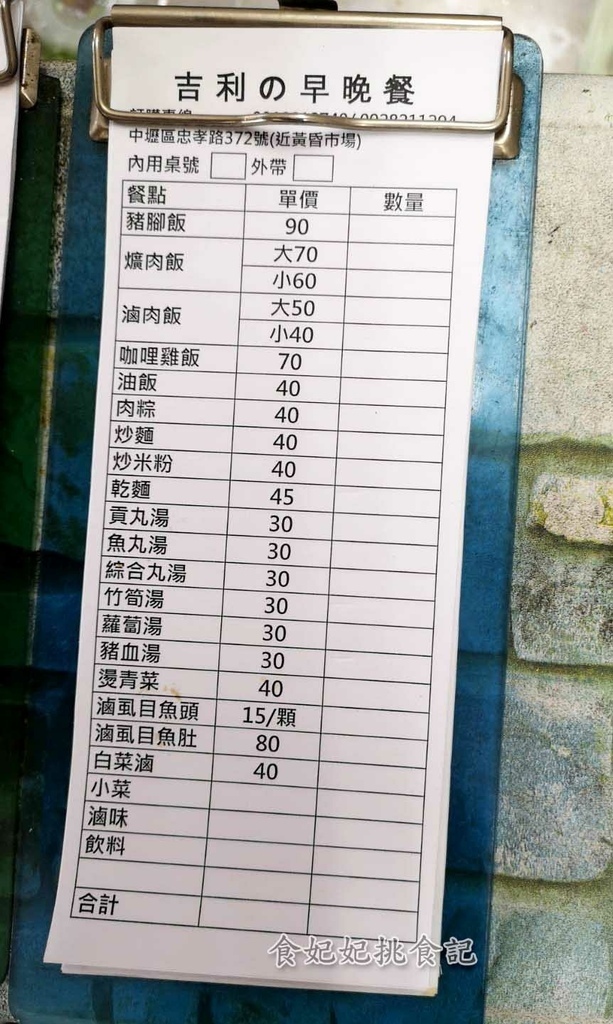 吉利の早晚餐
中壢區忠孝路372號(近黃昏市場)
內用桌號 外帶
餐點 單價 數量
豬腳飯 90
爌肉飯 大70
小60
滷肉飯 大50
小40
咖哩雞飯 70
油飯 40
肉粽 40
炒麵 40
炒米粉 40
乾麵 45
貢丸湯 30
魚丸湯 30
綜合丸湯 30
竹筍湯 30
蘿蔔湯 30
豬血湯 30
燙青菜 40
滷虱目魚頭 15/顆
滷虱目魚肚 80
白菜滷 40
小菜
滷味
飲料
合計
食妃妃挑食記